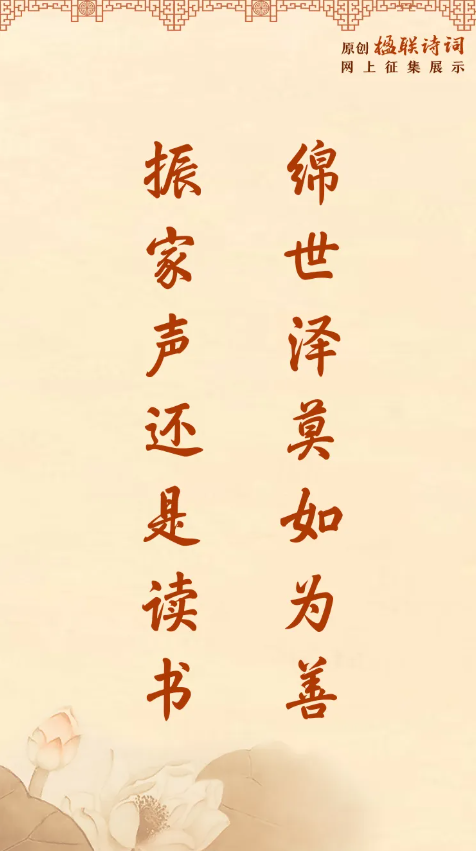 原创楹联诗词
网上征集展示
绵世泽莫如为善
振家声还是读书